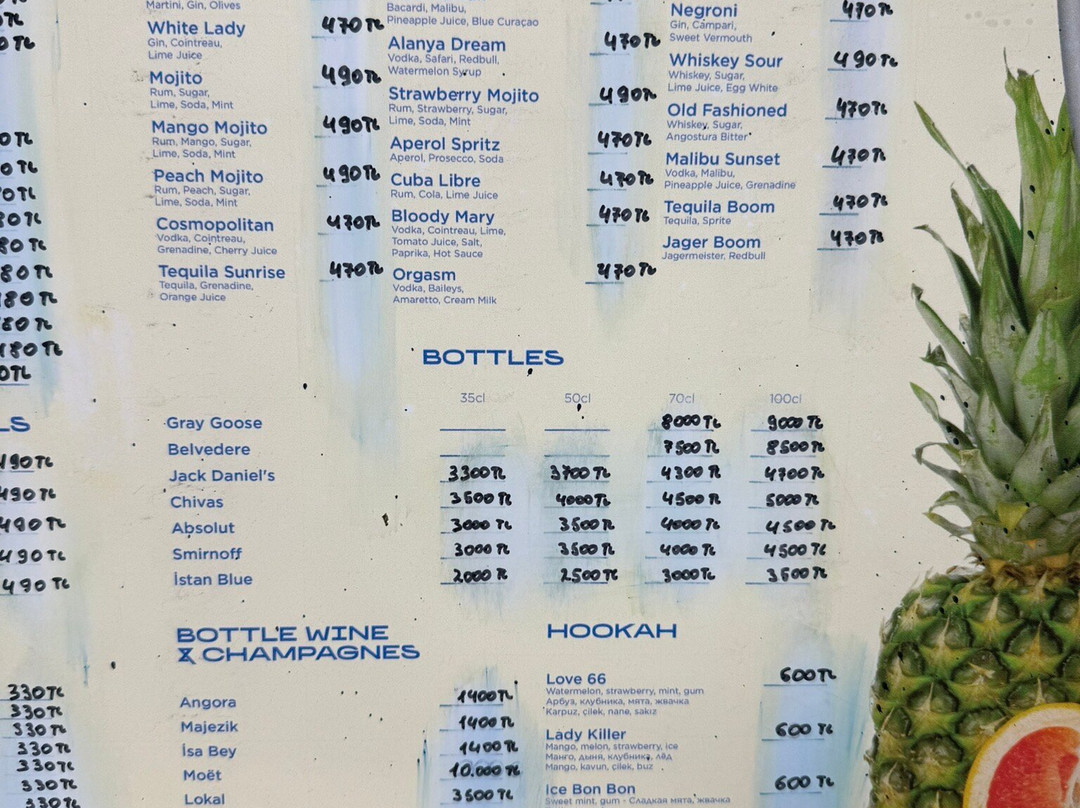 Martini, Gin, Olives
White Lady 470 TL
Gin, Cointreau,
Lime Juice
Mojito 490 TL
Rum, Sugar,
Lime, Soda, Mint
Mango Mojito 490 TL
Rum, Mango, Sugar,
Lime, Soda, Mint
Peach Mojito 490 TL
Rum, Peach, Sugar,
Lime, Soda, Mint
Cosmopolitan 470 TL
Vodka, Cointreau,
Grenadine, Cherry Juice
Tequila Sunrise 470 TL
Tequila, Grenadine,
Orange Juice
Bacardi, Malibu,
Pineapple Juice, Blue Curaçao
Alanya Dream 470 TL
Vodka, Safari, Redbull,
Watermelon Syrup
Strawberry Mojito 490 TL
Rum, Strawberry, Sugar,
Lime, Soda, Mint
Aperol Spritz 470 TL
Aperol, Prosecco, Soda
Cuba Libre 470 TL
Rum, Cola, Lime Juice
Bloody Mary 470 TL
Vodka, Cointreau, Lime,
Tomato Juice, Salt,
Paprika, Hot Sauce
Orgasm 470 TL
Vodka, Baileys,
Amaretto, Cream Milk
Negroni 470 TL
Gin, Campari,
Sweet Vermouth
Whiskey Sour 490 TL
Whiskey, Sugar,
Lime Juice, Egg White
Old Fashioned 470 TL
Whiskey, Sugar,
Angostura Bitter
Malibu Sunset 470 TL
Vodka, Malibu,
Pineapple Juice, Grenadine
Tequila Boom 470 TL
Tequila, Sprite
Jager Boom 470 TL
Jagermeister, Redbull
BOTTLES
35cl 50cl 70cl 100cl
Gray Goose 8000 TL 9000 TL
Belvedere 7500 TL 8500 TL
Jack Daniel's 3300 TL 3700 TL 4300 TL 4700 TL
Chivas 3500 TL 4000 TL 4500 TL 5000 TL
Absolut 3000 TL 3500 TL 4000 TL 4500 TL
Smirnoff 3000 TL 3500 TL 4000 TL 4500 TL
İstan Blue 2000 TL 2500 TL 3000 TL 3500 TL
490 TL
490 TL
490 TL
490 TL
490 TL
330 TL
330 TL
330 TL
330 TL
330 TL
330 TL
330 TL
BOTTLE WINE
& CHAMPAGNES
Angora 1400 TL
Majezik 1400 TL
İsa Bey 1400 TL
Moët 10.000 TL
Lokal 3500 TL
HOOKAH
Love 66 600 TL
Watermelon, strawberry, mint, gum
Арбуз, клубника, мята, жвачка
Karpuz, çilek, nane, sakız
Lady Killer 600 TL
Mango, melon, strawberry, ice
Манго, дыня, клубника, лёд
Mango, kavun, çilek, buz
ice Bon Bon 600 TL
Sweet mint, gum - Сладкая мята, жвачка